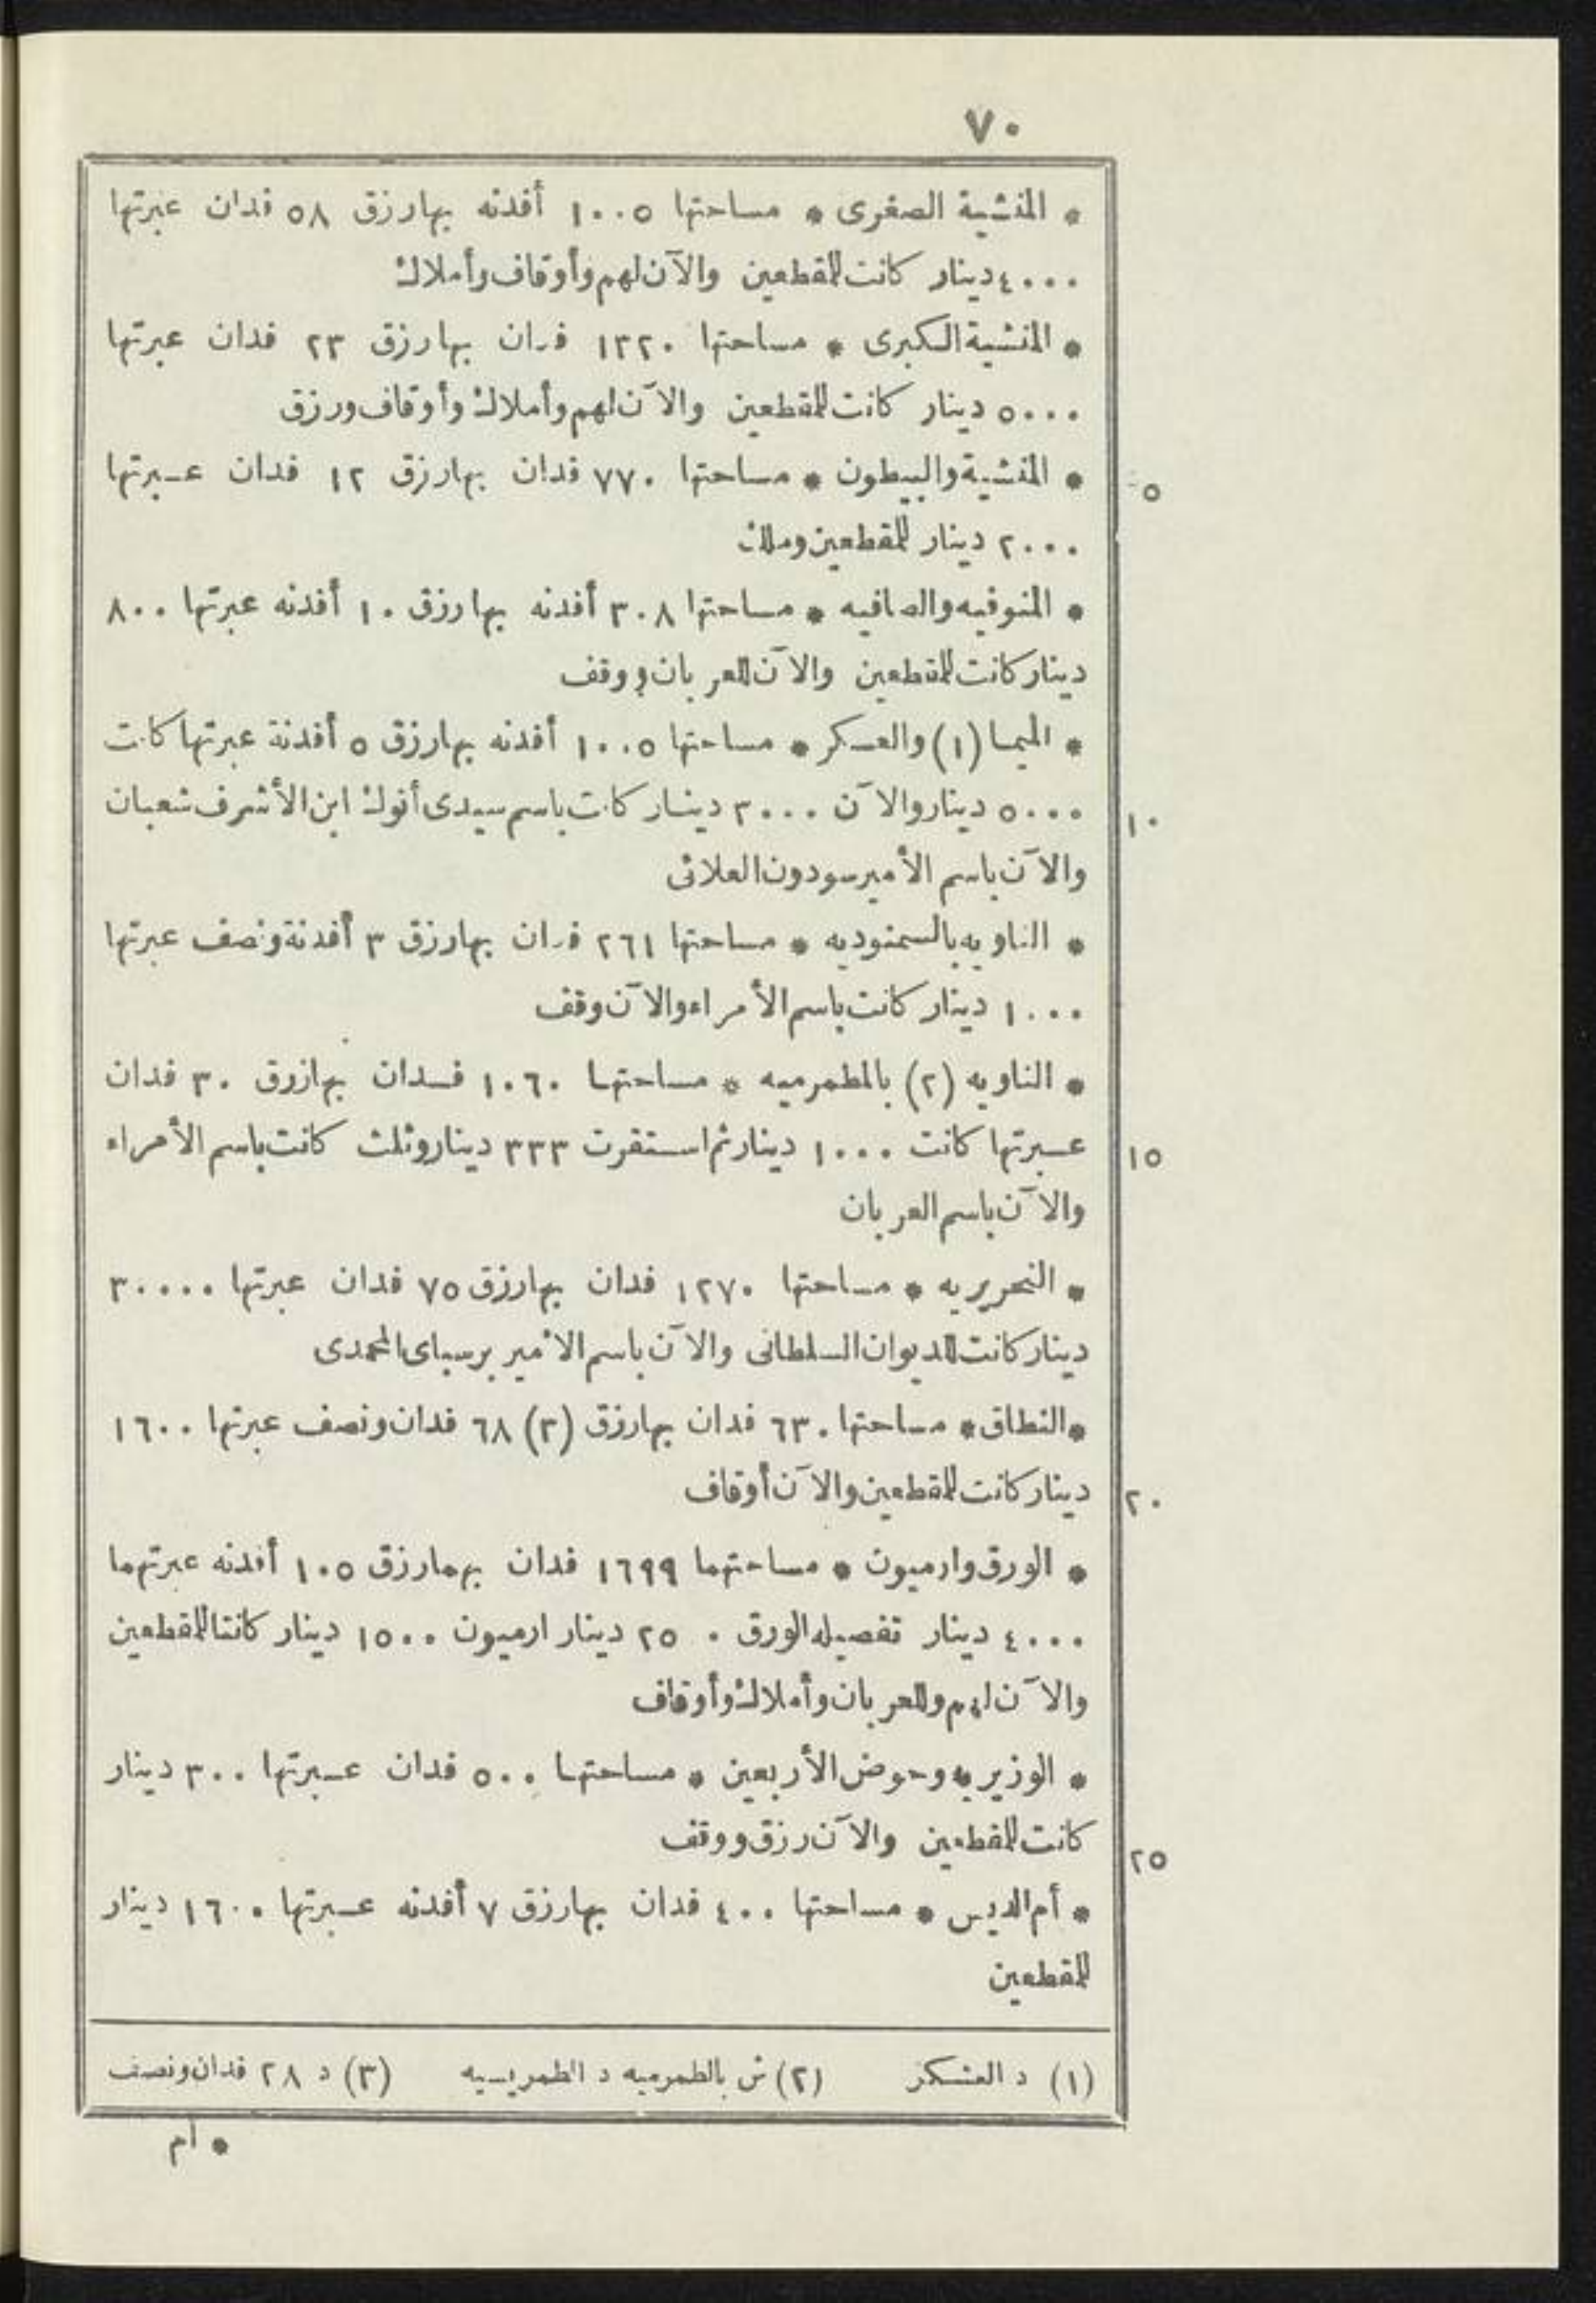 ٧٠
* المنشية الصغرى * مساحتها ١٠٠٥ أفدنه بها رزق ٥٨ فدان عبرتها
٤٠٠٠ دينار كانت للمقطعين والآن لهم وأوقاف وأملاك
* المنشية الكبرى * مساحتها ١٣٢٠ فدان بها رزق ٢٣ فدان عبرتها
٥٠٠٠ دينار كانت للمقطعين والآن لهم وأملاك وأوقاف ورزق
* المنشية والبيطون * مساحتها ٧٧٠ فدان بها رزق ١٢ فدان عبرتها
٥
٢٠٠٠ دينار للمقطعين وملك
* المنوفيه والصافيه * مساحتها ٣٠٨ أفدنه بها رزق ١٠ أفدنه عبرتها ٨٠٠
دينار كانت للمقطعين والآن للعربان ووقف
* الميما (١) والعسكر * مساحتها ١٠٠٥ أفدنه بها رزق ٥ أفدنة عبرتها كانت
٥٠٠٠ دينار والآن ٣٠٠٠ دينار كانت باسم سيدى أنوك ابن الأشرف شعبان
١٠
والآن باسم الأمير سودون العلائى
* الناويه بالسمنوديه * مساحتها ٢٦١ فدان بها رزق ٣ أفدنة ونصف عبرتها
١٠٠٠ دينار كانت باسم الأمراء والآن وقف
* الناويه (٢) بالطمرميه * مساحتها ١٠٦٠ فدان بها رزق ٣٠ فدان
عبرتها كانت ١٠٠٠ دينار ثم استقرت ٣٣٣ دينار وثلث كانت باسم الأمراء
١٥
والآن باسم العربان
* النحريريه * مساحتها ١٢٧٠ فدان بها رزق ٧٥ فدان عبرتها ٣٠٠٠٠
دينار كانت للديوان السلطانى والآن باسم الأمير برسباى المحمدى
* النطاق * مساحتها ٦٣٠ فدان بها رزق (٣) ٦٨ فدان ونصف عبرتها ١٦٠٠
دينار كانت للمقطعين والآن أوقاف
٢٠
* الورق وارميون * مساحتهما ١٦٩٩ فدان بهما رزق ١٠٥ أفدنه عبرتهما
٤٠٠٠ دينار تفصيله الورق ٢٥٠ دينار ارميون ١٥٠٠ دينار كانتا للمقطعين
والآن لهم وللعربان وأملاك وأوقاف
* الوزيريه وحوض الأربعين * مساحتها ٥٠٠ فدان عبرتها ٣٠٠ دينار
كانت للمقطعين والآن رزق ووقف
٢٥
* أم الديس * مساحتها ٤٠٠ فدان بها رزق ٧ أفدنه عبرتها ١٦٠٠ دينار
للمقطعين
(١) د العشكر (٢) ش بالطمرميه د الطمريسيه (٣) د ٢٨ فدان ونصف
* أم